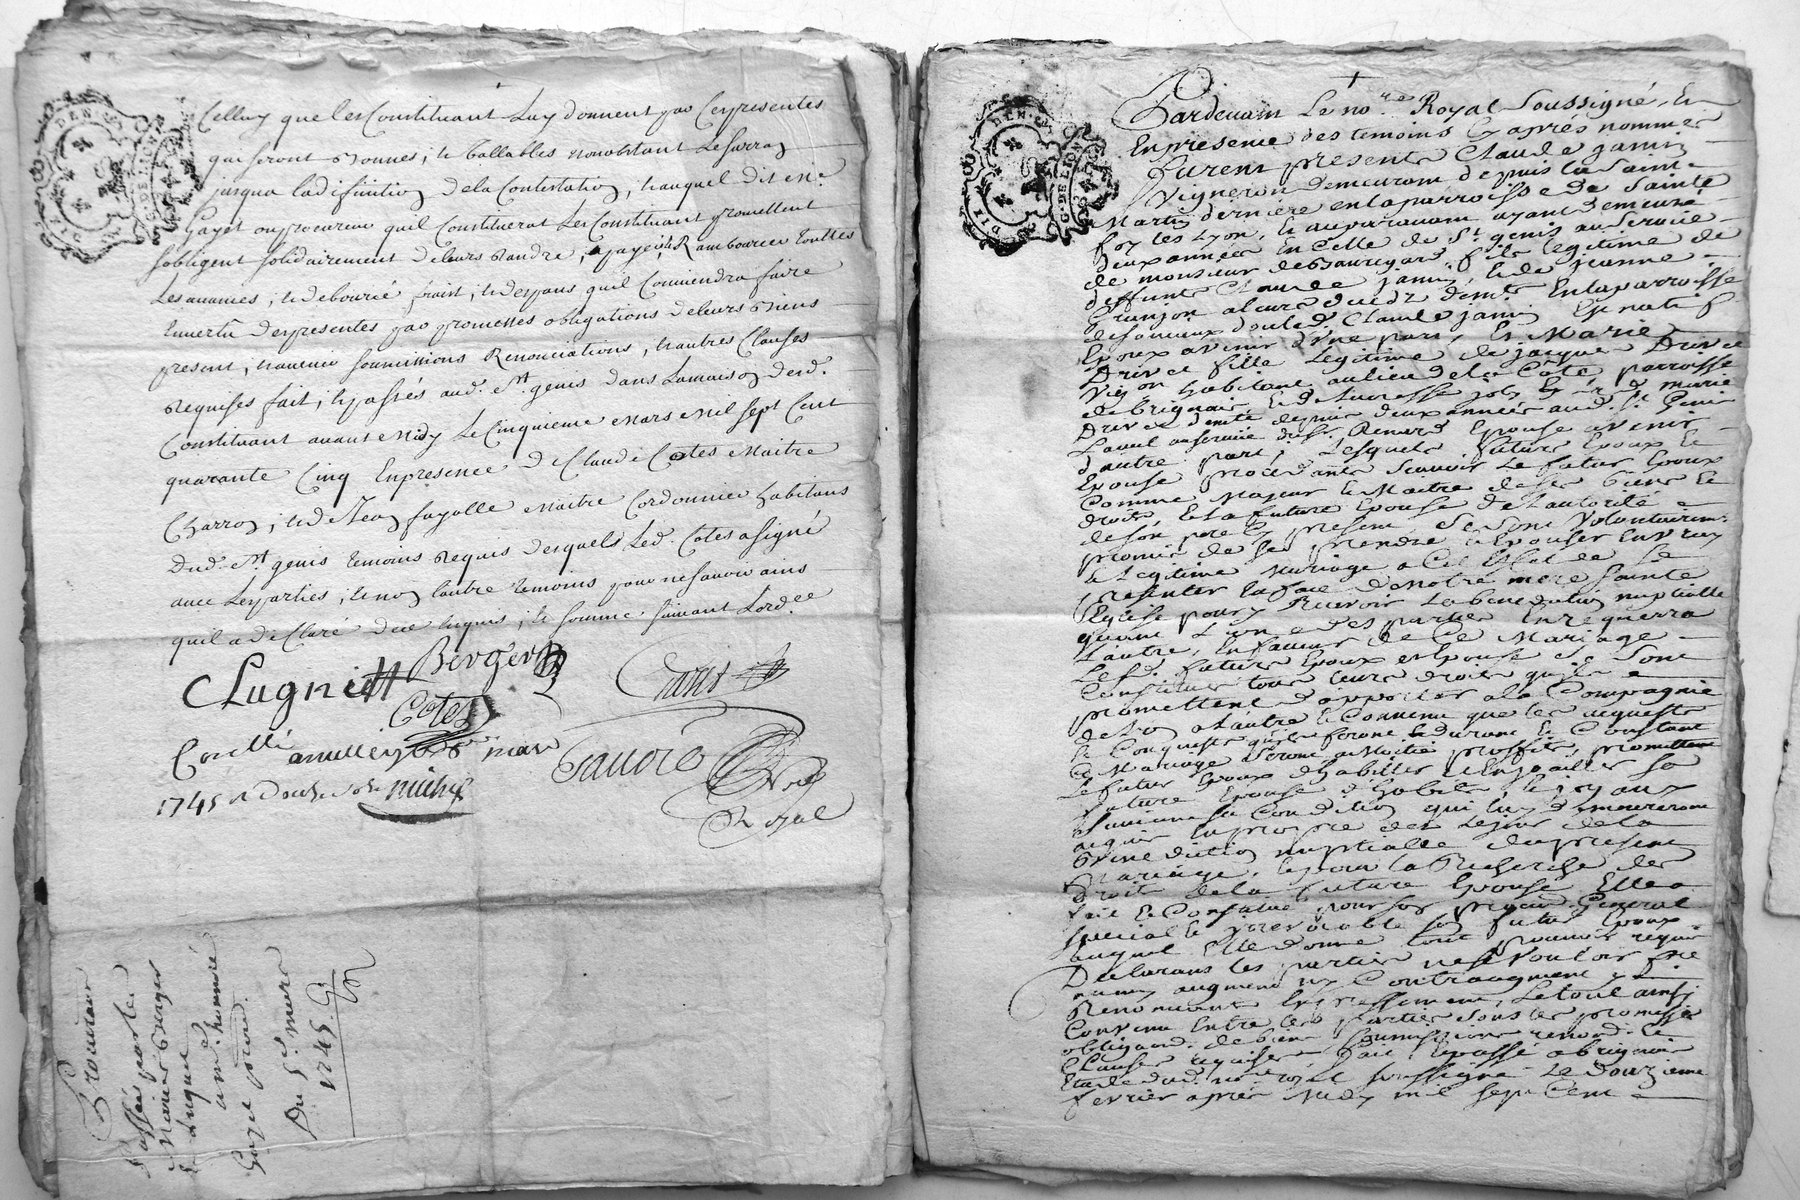 Celluy que les Constituant Luy donnent par Cespresentes
qui seront bonnes, et Vallables nonobstant
jusqua ladifinition dela Contestation, auquel dit me.
Gayet ouprocureur quil Constituerat Les Constituant promettent
sobligent solidairement deleurs Randre, payé, et Rambourcer touttes
Les avances, et debourcé frais, et depans quil Conviendra faire
Envertu despresentes par promesses obligations deleurs biens
present, et avenir soumissions Renonciations, et autres Clauses
Requises fait, et passés aud. St. genis dans Lamaison desd.
Constituant avant Midy Le Cinquieme Mars Mil sept Cent
quarante Cinq Enpresence de Claude Cotes Maitre
Charron, et de Jean fayolle Maitre Cordonnier habitans
Dud. St. genis temoins Requis desquels Led. Cotes asigné
avec Lesparties, et non Lautre temoins pour nesavoir ains
quil a déclaré de ce Enquis, et sommé, suivant Lord.ce
CLugniett Berger
Cotes
Controllé amillery le mars
1745 R Douze sols
Royal
DIE DEN
G. DE LION
Procuration
Passée par les
Maries Berger
a me. honnoré
Gayet procur.
Du 5e. mars
1745
Pardevant Le no.re Royal Soussigné, Et
Enpresence des temoins Cy aprés nommes
Furent presents Claude Janin
Vigneron demeurant depuis la Saint
Martin derniere en la parroisse de Sainte
foy les Lyon, et auparavant ayant demeuré
deux années En Celle de St. genis au service
de monsieur deBeauregard, fils legitime de
deffunt Claude Janin, et de jeanne
desd. Claude janin Est natif
Epoux avenir d'une part, Et Marie
Drivet fille Legitime de jacques Drivet
Vig.on habitant aulieu dela Cote parroisse
de brignais, et de
depuis deux années aud. St. Genis
Laval auservice du Sr. Renard Epouse avenir
d'autre part, Lesquels futurs Epoux Et
Epouse procedants scavoir Le futur Epoux
Comme Majeur et Maitre de ses biens Et
droits, Et La future Epouse de Lautorité
de son pere Cy present se sont Volontairem.
promis de se prendre et Epouser En vray
et Legitime Mariage a Cet Effet de se
presenter En face de Notre mere sainte
Eglise pour y Recevoir La benediction nuptialle
quant L'une des parties En requerra
L'autre, En faveur de Ce Mariage
Lesd. futurs Epoux et Epouse se sont
Constitués tous leurs droits quils
promettent d'apporter a la Compagnie
de L'un a Lautre et Convenu que les acquests
et Conquests quils feront Endurant et Constant
Ce Mariage seront a Moitié proffits, promettant
Le futur Epoux d'habiller et Enjoailler sa
future Epouse d'habits, et joyaux
suivant sa Condition qui luy demoureront
acquis En propre dès Lejour dela
Benediction nuptialle dupresent
Mariage, et pour La Recherche des
droits dela future Epouse Elle a
fait Et Constitué pour son procur. General
special Et irrevocable son futur Epoux
auquel Elle donne tout pouvoir requis
Declarans les parties ne se Vouloir faire
aucun augment ny Contraugment y
Renonçant Expressement, Le tout ainsi
Convenu Entre les parties sous les promesses
obligaons. de biens soumissions renonc. Et
Clauses requises fait, Et passé a brignais
Etude dud. no.re royal soussigné Le douzieme
fevrier apres Midy mil sept Cent
DIE DEN
G. DE LION